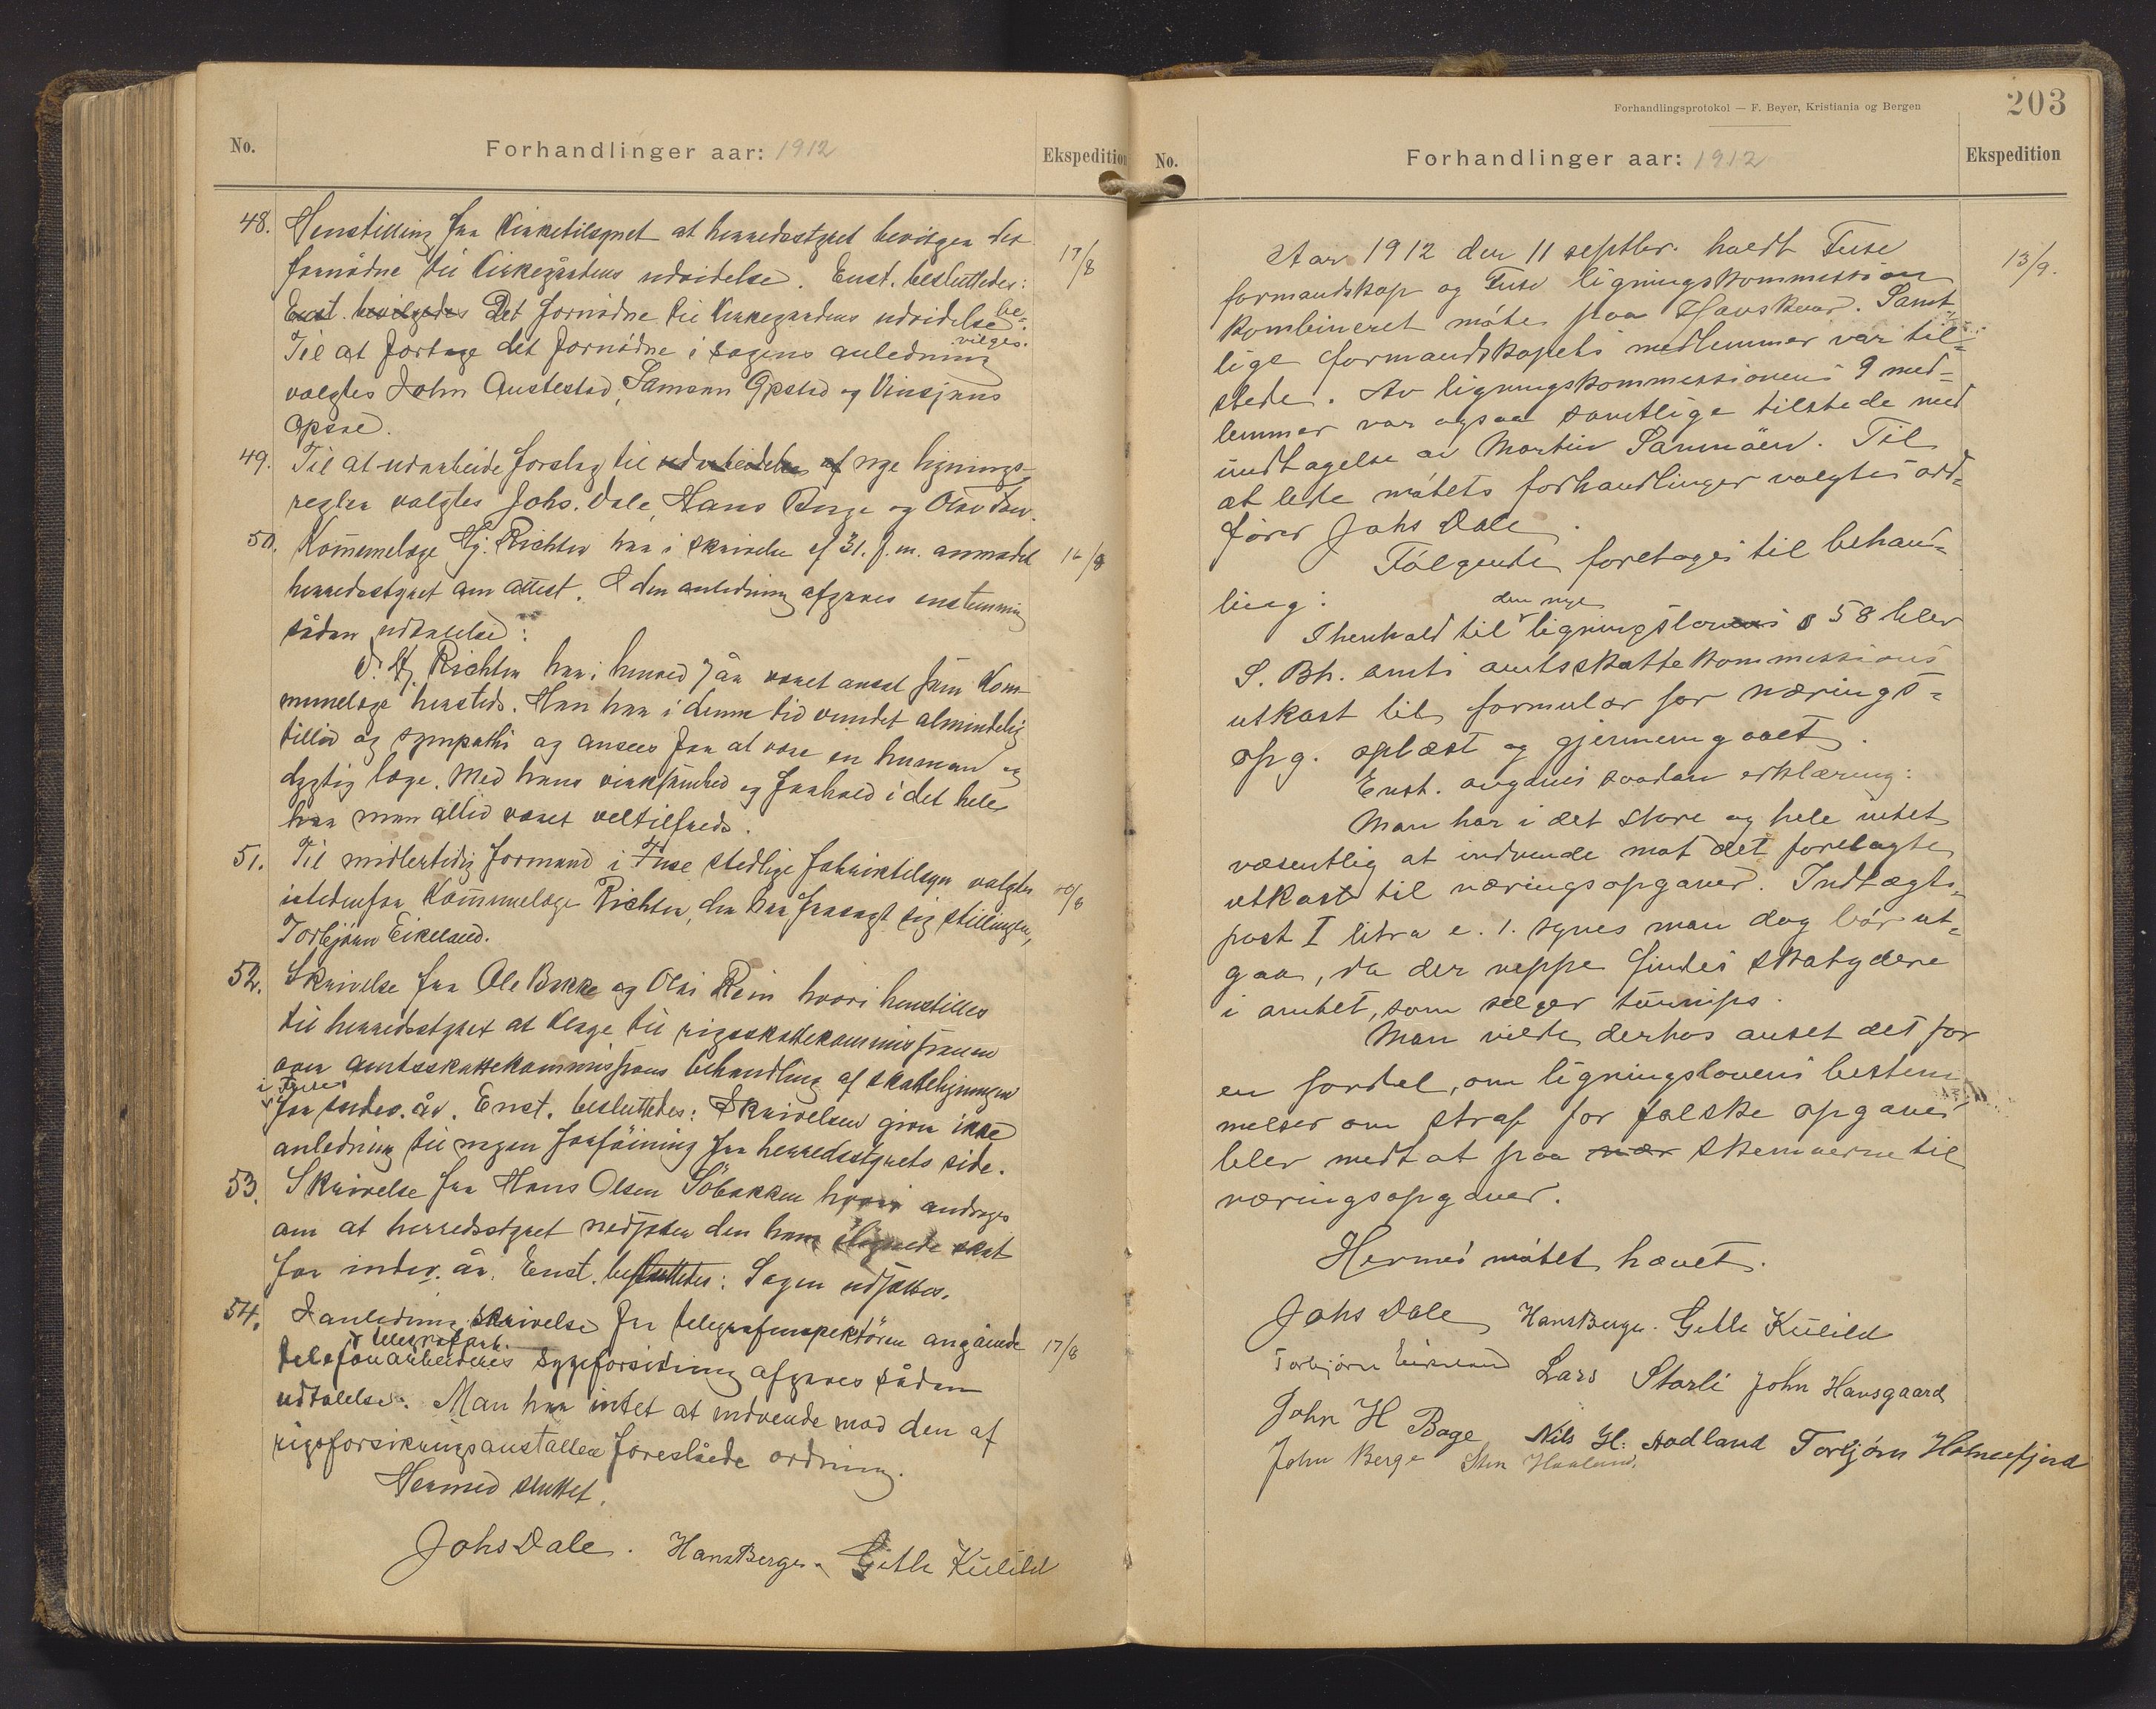 No.
Forhandlinger aar: 1912
Ekspedition
48. Henstilling fra Kirketilsynet at herredsstyret bevilger det
fornødne til Kirkegårdens udvidelse. Enst. besluttedes:
17/8
Enst. bevilgedes Det fornødne til Kirkegaardens udvidelse be-
vilges.
Til at fortage det fornødne i sagens anledning
valgtes John Austestad, Samson Opsted og Vinsjans
Opsae.
49. Til at udarbeide forslag til udarbeidelse af nye lignings-
regler valgtes Johs. Dale, Hans Berge og Olav
50. Kommunelæge Hj. Richter har i skrivelse af 31. f. m. anmodet
herredsstyret om attest. I den anledning afgaves enstemmig
sådan udtalelse:
Hj. Richter har i henved 7 år været ansat som Kom-
munelæge hersteds. Han har i denne tid vundet almindelig
tillid og sympathi og ansees for at være en human og
dygtig læge. Med hans virksomhed og forhold i det hele
har man altid været veltilfreds.
51. Til midlertidig formand i Fuse stedlige fabriktilsyn valgtes
istedenfor Kommunelæge Richter, der har frasagt sig stillingen,
Torbjørn Eikeland.
52. Skrivelse fra Ole Bakke og Olai Røin hvori henstilles
til herredsstyret at klage til rigsskattekommissionen
over amtsskattekommissions behandling af skatteligningen
i Fuse
for indev. år. Enst. besluttedes: Skrivelsen giver ikke
anledning til nogen forføining fra herredsstyrets side.
53. Skrivelse fra Hans Olsen Söbakken hvori andrages
om at herredsstyret nedsetter den ham ilignede skat
for indev. år. Enst. besluttedes: Sagen udsættes.
54. I anledning skrivelse fra telegrafinspektören angående
17/8
& telegrafarb.
telefonarbeideres sygeforsikring afgaves sådan
udtalelse: Man har intet at indvende mod den af
rigsforsikringsanstalten foreslåede ordning.
Hermed sluttet.
Johs Dale. Hans Berge. Gitle Kulild
Forhandlingsprotokol — F. Beyer, Kristiania og Bergen
203
No.
Forhandlinger aar: 1912
Ekspedition
Aar 1912 den 11 septbr. holdt Fuse
13/9.
formandskap og Fuse ligningskommission
kombineret møte paa Havskaar. Samt-
lige formandskapets medlemmer var til-
stede. Av ligningskommissionens 9 med-
lemmer var ogsaa samtlige tilstede med
undtagelse av Martin Sammöen. Til
at lede møtets forhandlinger valgtes ord-
fører Johs Dale.
Følgende foretoges til behand-
ling:
den nye
I henhold til ligningslovens § 58 blev
S. Bh. amts amtsskattekommissions
utkast til formular for nærings-
opg. oplæst og gjennemgaaet.
Enst. avgaves saadan erklæring:
Man har i det store og hele intet
væsentlig at indvende mot det forelagte
utkast til næringsopgaver. Indtægts-
post I litra e. 1. synes man dog bør ut-
gaa, da der neppe findes skatydere
i amtet, som selger turnips.
Man vilde derhos anset det for
en fordel, om ligningslovens bestem-
melser om straf for falske opgaver
blev medtat paa nær skemaerne til
næringsopgaver.
Hermed møtet hævet.
Johs Dale Hans Berge. Gitle Kulild
Torbjørn Eikeland Lars Storli John Havsgaard
John H Bage Nils H. Aadland Torbjørn Holmefjord
John Berge Sten Haaland.